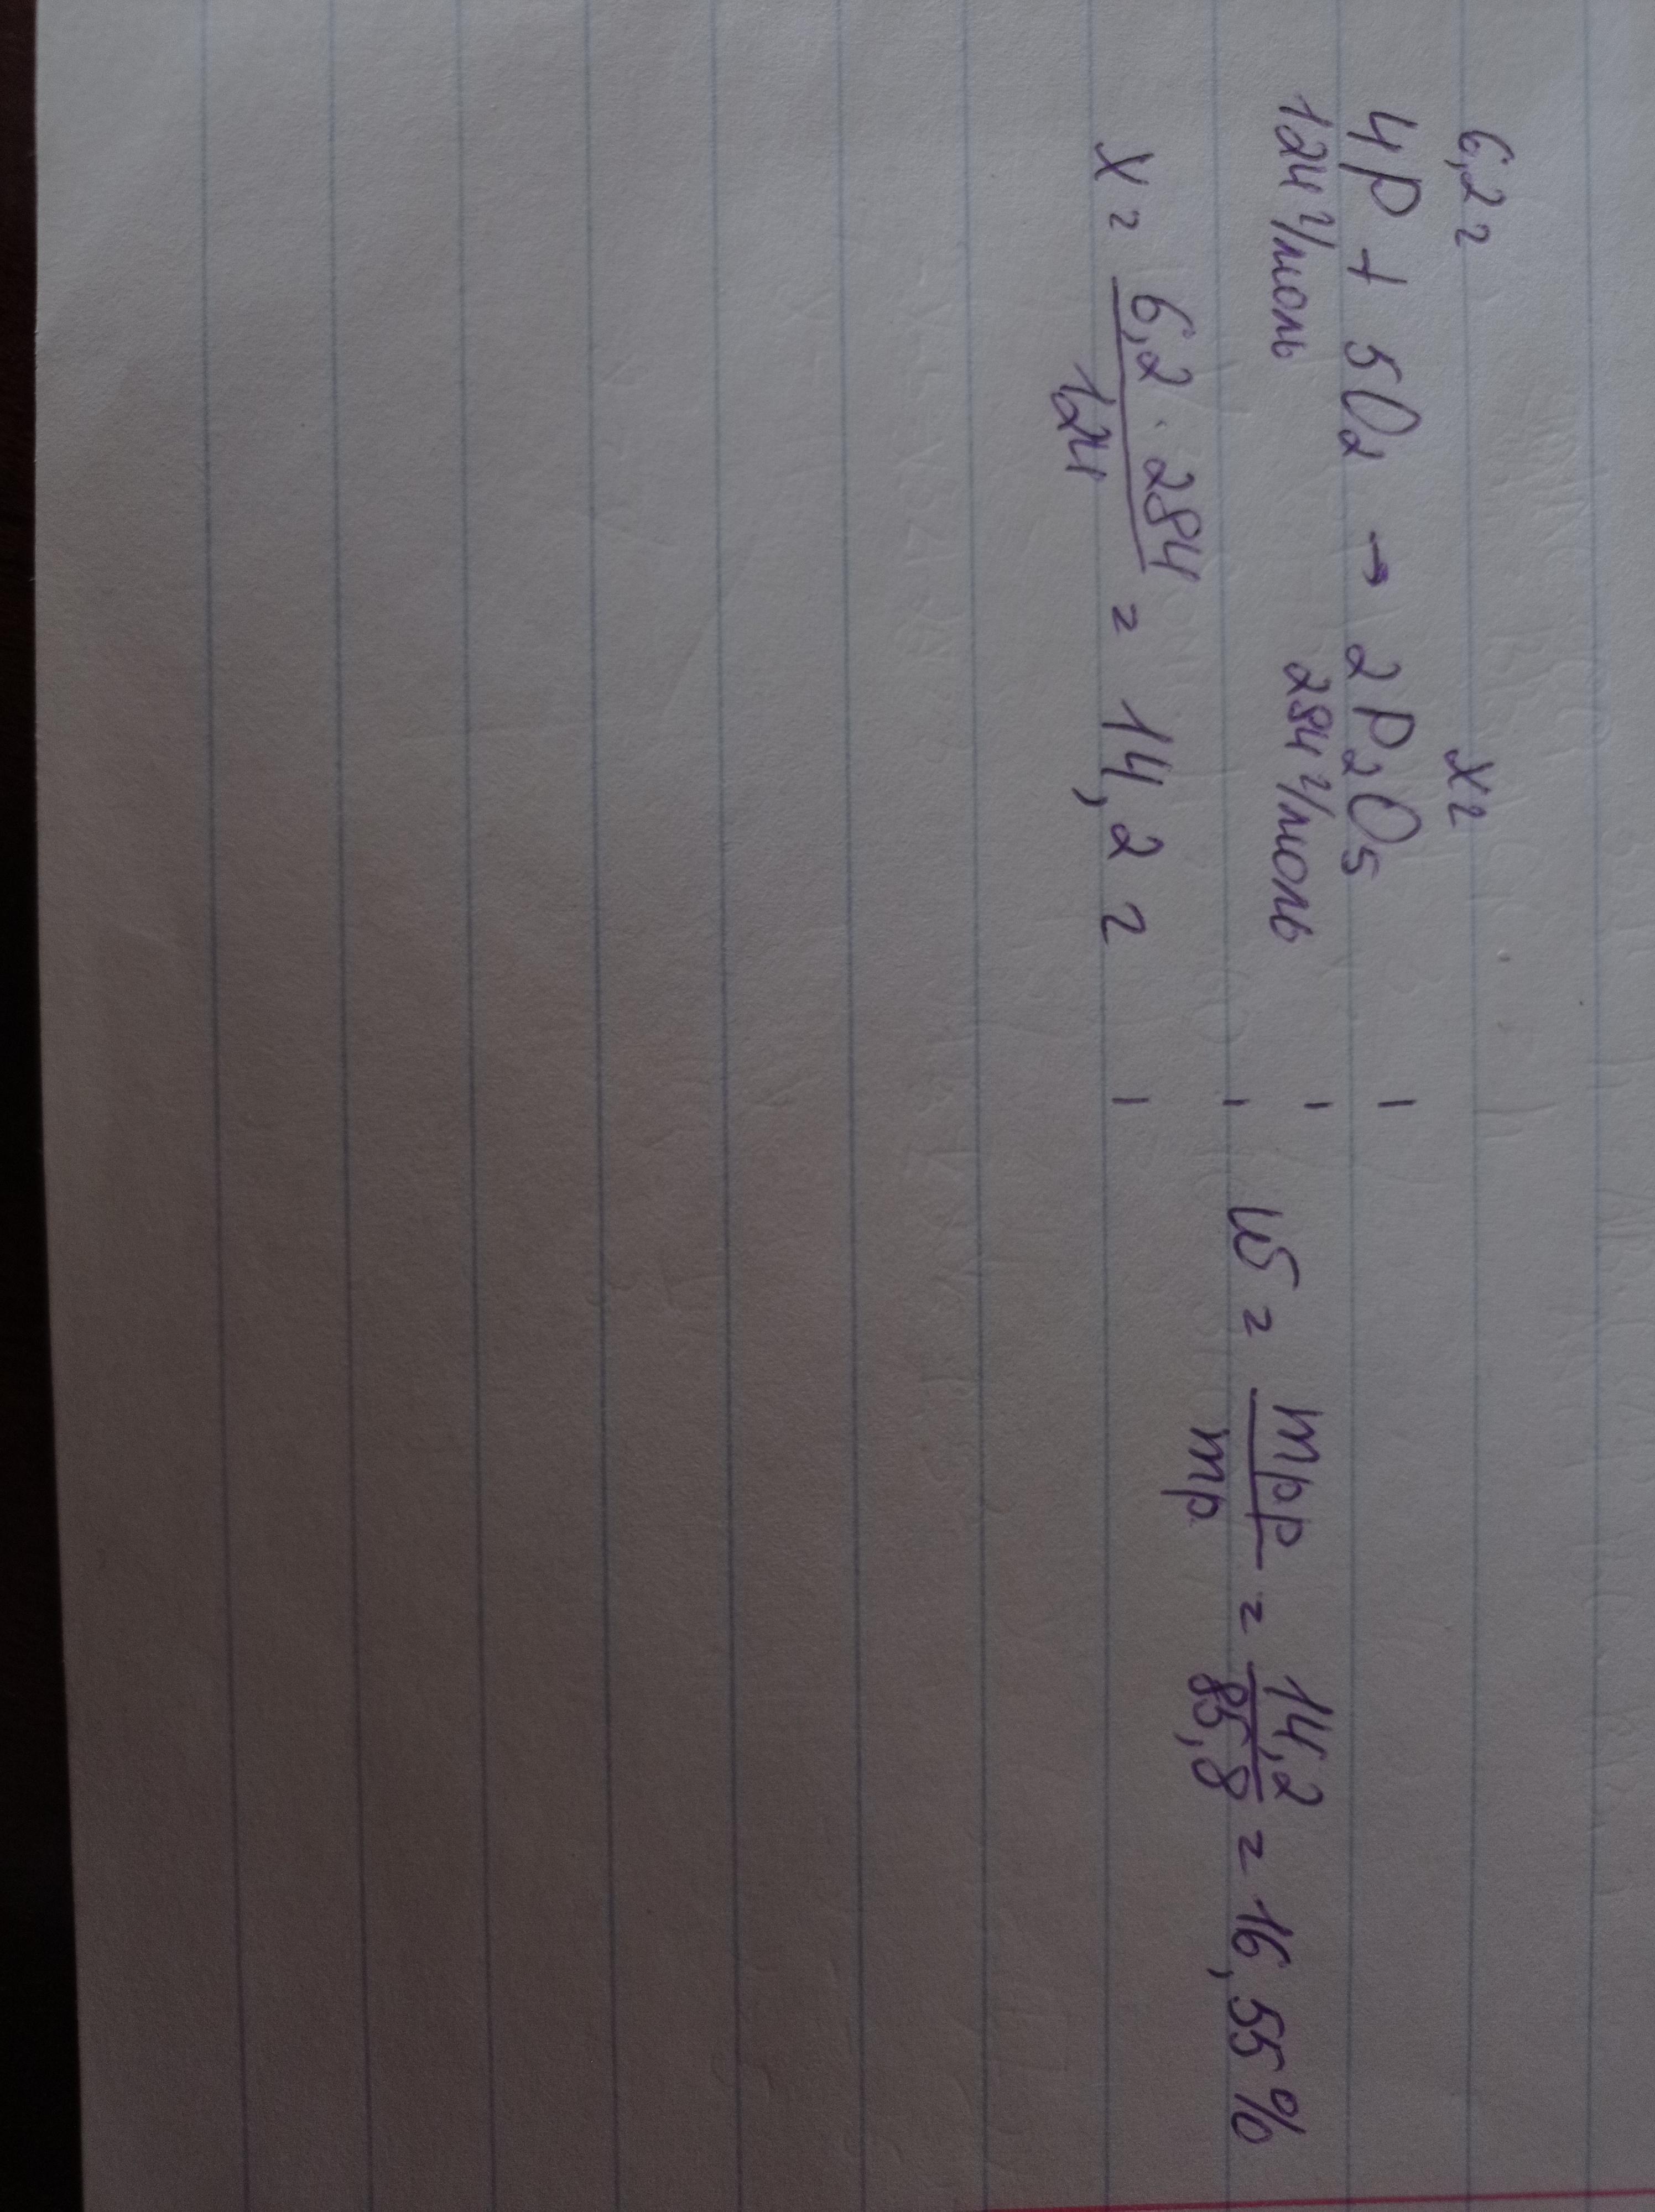 6,2 г            x г
4P + 5O₂ → 2P₂O₅
124 г/моль    284 г/моль
x = 6,2 · 284 / 124 = 14,2 г
ω = mрр / mр = 14,2 / 85,8 = 16,55%